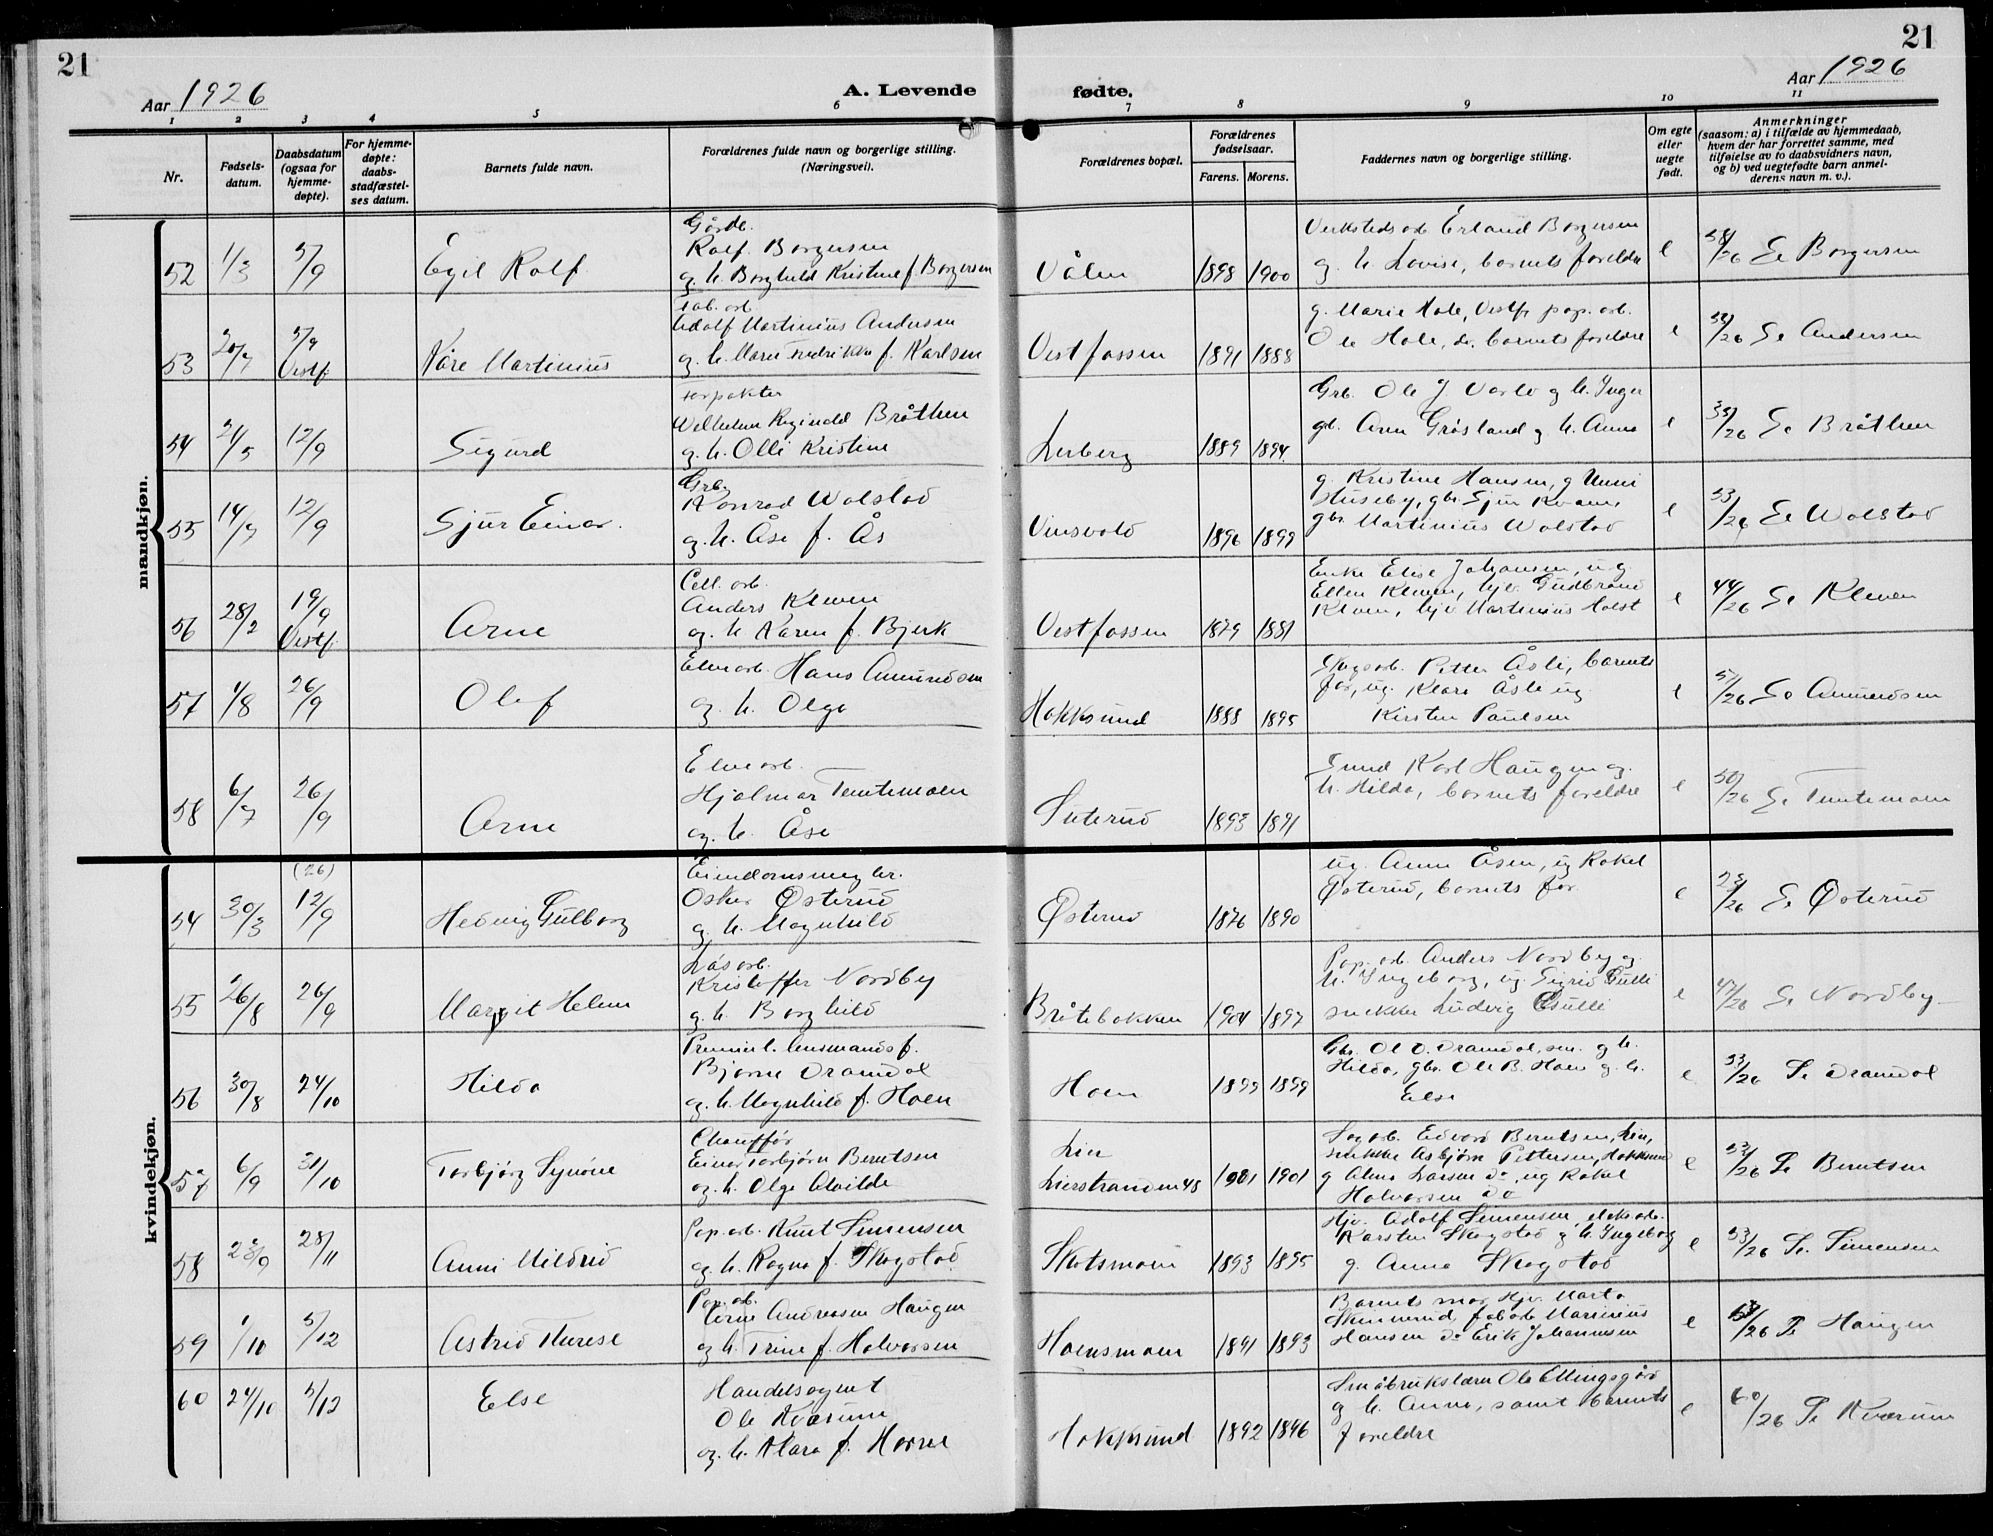 21
21
Aar 1926
A. Levende fødte.
Aar 1926
1 2 3 4 5 6 7 8 9 10 11
Nr.
Fødsels-
datum.
Daabsdatum
(ogsaa for
hjemme-
døpte).
For hjemme-
døpte:
daabs-
stadfæstel-
ses datum.
Barnets fulde navn.
Forældrenes fulde navn og borgerlige stilling.
(Næringsvei).
Forældrenes bopæl.
Forældrenes
fødselsaar.
Farens. Morens.
Faddernes navn og borgerlige stilling.
Om egte
eller
uegte
født.
Anmerkninger
(saasom: a) i tilfælde av hjemmedaab,
hvem der har forrettet samme, med
tilføielse av to daabsvidners navn,
og b) ved uegtefødte barn anmel-
derens navn m. v.).
mandkjøn.
52 1/3 5/9 Egil Rolf
Gårdb.
Rolf Borgersen
og h. Borghild Kristine f. Borgersen
Vålen 1898 1900
Verksteds arb Erland Borgersen
og h. Lovise, barnets foreldre
e 58/26 Se Borgersen
53 20/7 5/9 Vestf. Kåre Martinius
Fab. arb.
Adolf Martinius Andersen
og h. Marie Fredrikke f. Karlsen
Vestfossen 1891 1888
g. Marie Hole, Vestf. pap. arb.
Ole Hole, do. barnets foreldre
e /26 Se Andersen
54 21/5 12/9 Sigurd
Forpakter
Wilhelm Reginald Bråthen
og h. Olli Kristine
Lerberg 1889 1894
Grb. Ole J. Varlo og h. Inger
gb. Arn Gråsland og h. Anna
e 35/26 Se Bråthen
55 14/7 12/9 Sjur Einar.
Grb.
Konrad Wolstad
og h. Åse f. Ås
Vinsvold 1896 1899
g. Kristine Hansen, g Unni
Huseby, gbr. Sjur Kvam,
gbr Martinius Wolstad
e 33/26 Se Wolstad
56 28/2 19/9 Vestf. Arne
Cell. arb.
Anders Kleven
og h Karen f. Bjerk
Vestfossen 1879 1881
Enke Elise Johansen, ug
Ellen Kleven, hjv. Gudbrand
Kleven, hjv Martinius Holst
e 44/26 Se Kleven
57 1/8 26/9 Olaf
Elvearb. Hans Amundsen
og h. Olga
Hokksund 1888 1895
Skogsarb. Petter Åsli, barnets
far, ug. Klara Åsli ug.
Kirsten Paulsen
e 51/26 Se Amundsen
58 6/7 26/9 Arne
Elvearb.
Hjalmar Temtemoen
og h. Åse
Suterud 1893 1891
Smed Karl Haugen og
h. Hilda, barnets foreldre
e 50/26 Se Temtemoen
kvindekjøn.
54 30/3 (26) 12/9 Hedvig Gulborg
Eiendomsmegler.
Oskar Østerud
og h. Magnhild
Østerud 1876 1890
ug. Anna Åsen, ug Rakel
Østerud, barnets far
e 23/26 Se Østerud
55 26/8 26/9 Margit Helene
Løsarb.
Kristoffer Nordby
og h. Borghild
Bråtebakken 1904 1897
Pap. arb Anders Nordby og
h. Ingeborg, ug. Sigrid Gulli
snekker Ludvig Gulli
e 47/26 Se Nordby
56 30/8 24/10 Hilda
Premierl.
Bjarne Dramdal
og h. Magnhild f. Hoen
Hoen 1899 1899
Gbr. Ol O. Dramdal, sen. og h.
Hilda, gbr. Ole B. Hoen og h.
Else
e 33/26 Se Dramdal
57 6/9 31/10 Torbjørg Synøve
Chauffør
Einar Torbjørn Berntsen
og h. Olga Alvilde
Lier
Lierstranden 48 1901 1901
Sagarb. Edvard Berntsen, Lier,
snekker Asbjørn Pettersen, Hokksund
g Alma Larsen do, ug Rakel
Halvorsen do
e 53/26 Se Berntsen
58 23/9 28/11 Anni Mildrid
Pap. arb. Knut Simensen
og h. Ragna f. Skogstad
Skotsmoen 1893 1895
Hjv. Adolf Simensen, elekarb.
Karsten Skogstad og h. Ingeborg
g. Anna Skogstad
e 53/26 Se Simensen
59 1/10 5/12 Astrid Therese
Pap. arb.
Arne Andreasen Haugen
og h. Trine f. Halvorsen
Hoensmoen 1891 1893
Barnets mor, Hjv. Marta
fabarb Marinius
Hansen do Erik Johannesen
e /26 Se Haugen
60 24/10 5/12 Else
Handelsagent
Ole Kværum
og h. Klara f. Horne
Hokksund 1892 1896
Småbrukslærer Ole Ellingsgård
og h. Anna, samt barnets
foreldre
e 60/26 Se Kværum